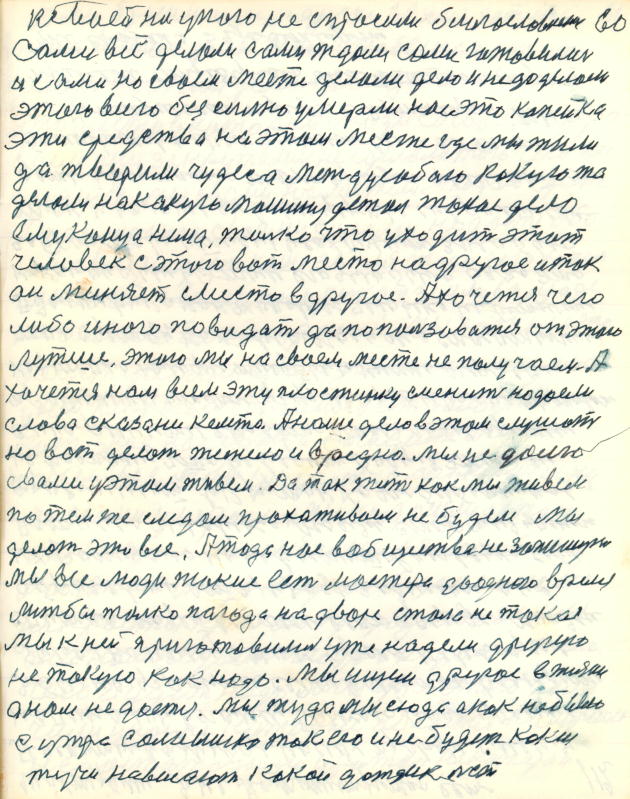 не спросили благословения 60
Сами всё делали сами ждали сами готовилис
и сами на своем месте делали дело и недоделали
этого всего без силно умерли нас это копейка
эти средства на этом месте где мы жили
да творили чудеса между собою какую жа
делали накакую машину детал такое дело
ему конца нема, толко что уходит этот
человек с этого вот место на другое и так
он миняет с место в другое. А хочется чего
либо иного повидат да попользоватся от этого
лутше, этого ми на своем месте не получаем. А
хочется нам всем эту пластинку сменит надоели
слова сказани кемта. А наше дело в этом слушат
но вот делат тежело и вредно. Мы не долго
свами у этом живем. Да так жит как мы живем
по тем же следам прохаживаем не будем мы
делат это все. А тода нас вобщества не
мы все люди такие ест мастера уодного время
толко пагода на дворе стала не такая
мы к ней приготовилис уже надели другую
не такую как надо. Мы ищем другое в жизни
а нам не дается. Мы туда мы сюда а как небыло
с утра солнышко так его и не будет какии
тучи нависают какой дождик